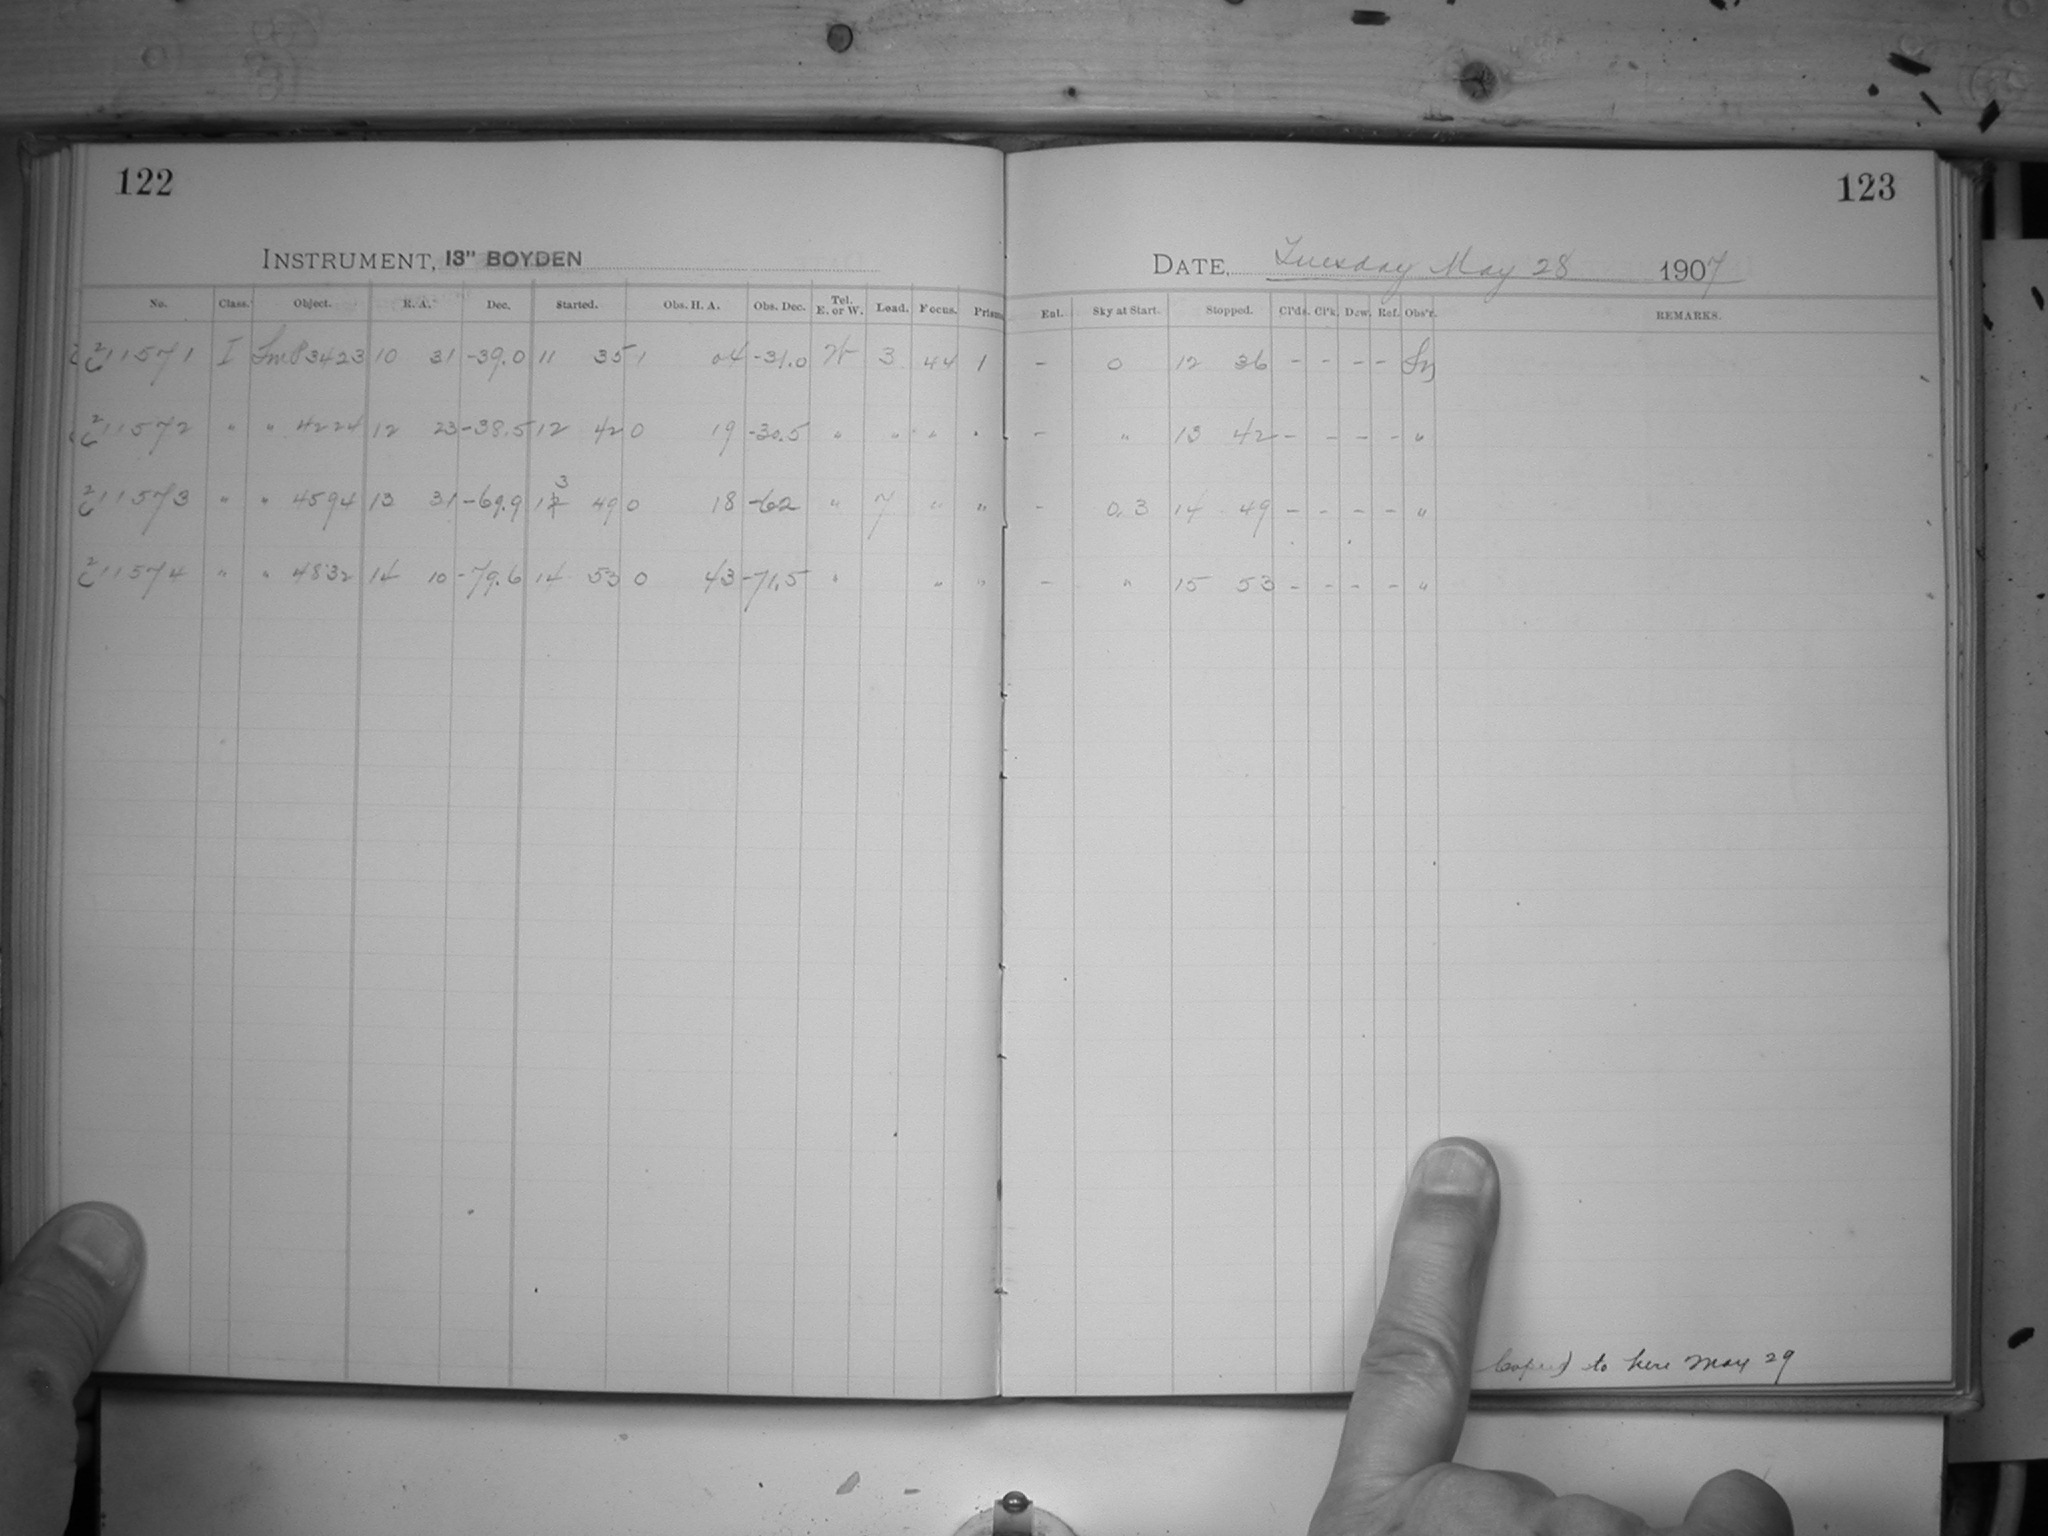 122
INSTRUMENT, 13" BOYDEN
No. Class. Object. R. A. Dec. Started. Obs. H. A. Obs. Dec. Tel. E. or W. Load. Focus. Prism
11571 I 3423 10 31 -39.0 11 35 1 04 -31.0 W 3 44 1
11572 " " 4224 12 23 -38.5 12 42 0 19 -30.5 " " " "
11573 " " 4594 13 31 -69.9 13 49 0 18 -62 " 7 " "
11574 " " 4832 14 10 -79.6 14 53 0 43 -71.5 " " "
123
DATE, Tuesday May 28 1907
Enl. Sky at Start. Stopped. Cl'ds. Cl'k. Dew. Ref. Obs'r. REMARKS.
- 0 12 36 - - - -
- " 13 42 - - - - "
- 0.3 14 49 - - - - "
- " 15 53 - - - - "
Copied to here May 29